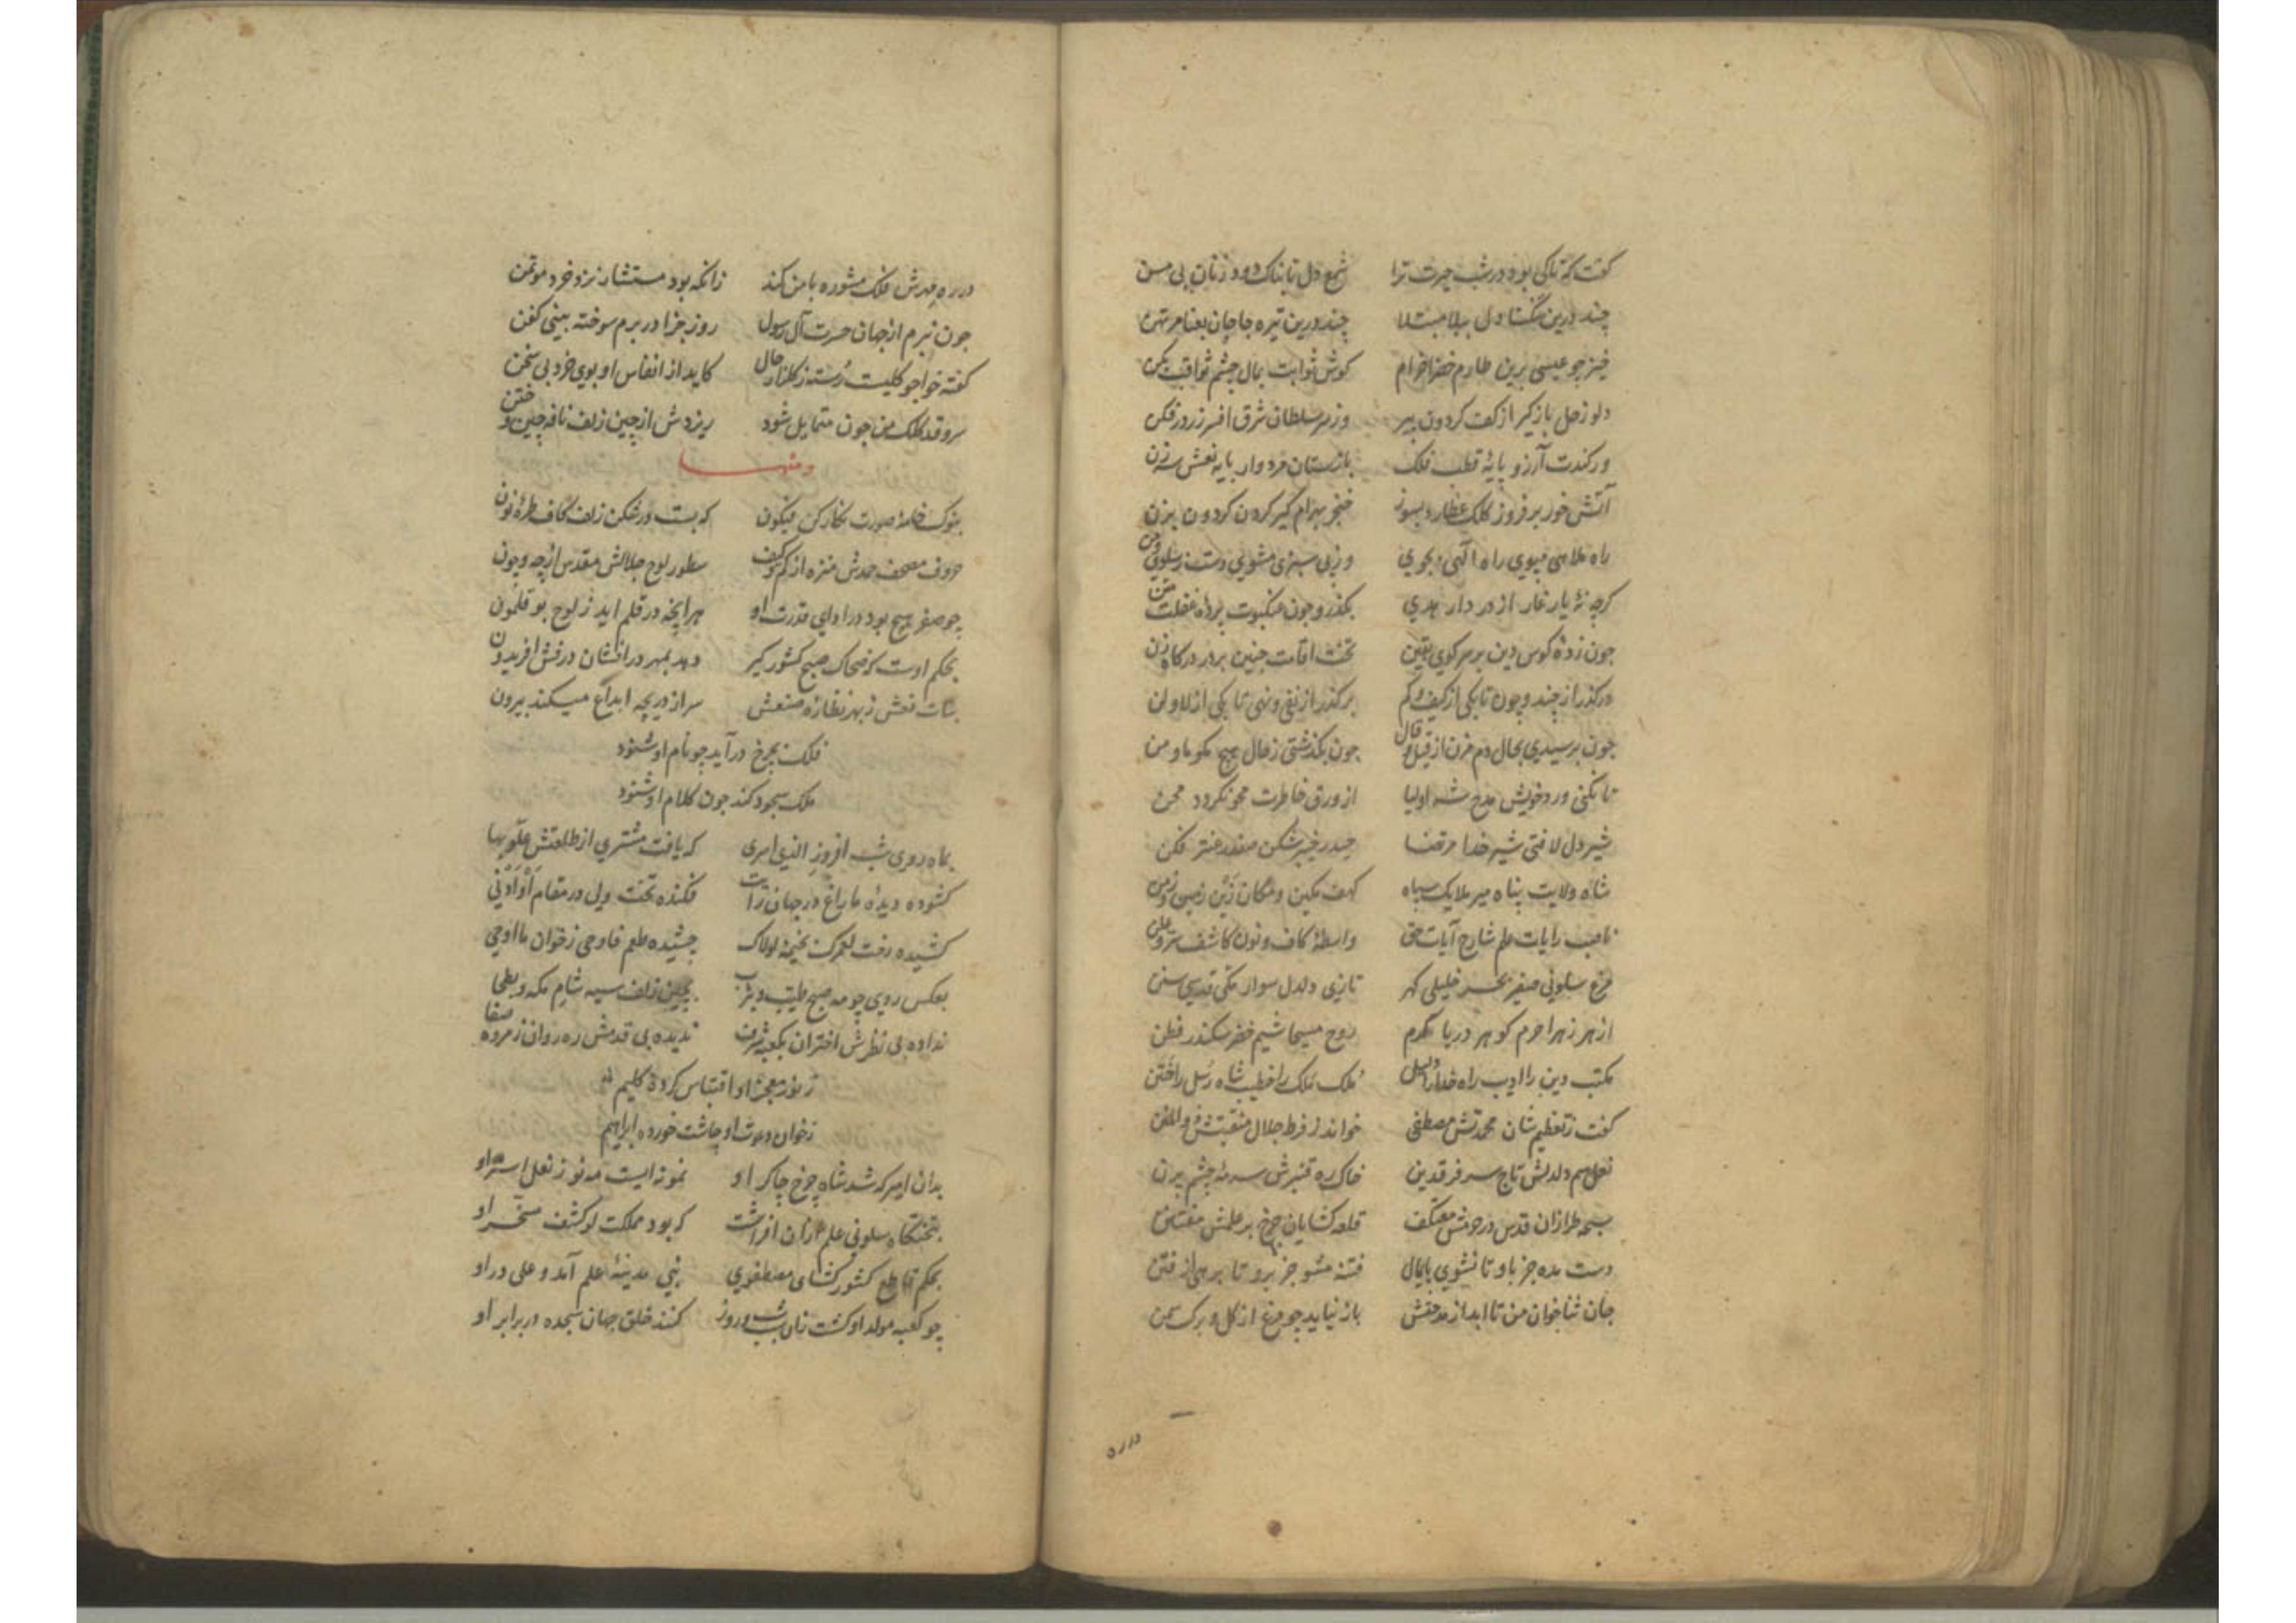 گفت که تاکی بود در شب حیرت ترا شمع دل تابناک دود زنان بی مسن
چند درین تنگنا دل ببلا مبتلا چند درین تیره جا جان بعنا مرتهن
خیز چو عیسی برین طارم خضرا خرام کوش ثوابت بمال چشم ثواقب بکن
دلو زحل باز کیر از کف کردون پیر وز سر سلطان شرق افسر زر در فکن
ور کندت آرزو پایهٔ قطب فلک بازستان مردوار پایه نعش سه زن
آتش خور بر فروز کلک عطارد بسوز خنجر بهرام کیر کردن کردون بزن
راه ملاهی مپوی راه الهی بجوی وز پی سبزی مشوی دست ز سلوی و من
کرچه نهٔ یار غار از در دار هدی بکذر و چون عنکبوت پردهٔ غفلت متن
چون زدهٔ کوس دین بر سر کوی یقین تخت اقامت چنین بر در درکاه زن
درکذر از چند و چون تا بکی از کیف و کم برکذر از نفی و نهی تا بکی از لا و لن
چون برسیدی بحال دم مزن از قیل و قال چون بکذشتی ز حال هیچ مکو ما و من
تا نکنی ورد خویش مدح شه اولیا از ورق خاطرت محو نکردد محن
شیر دل لا فتی شیر خدا مرتضا حیدر خیبر شکن صفدر عنتر فکن
شاه ولایت پناه میر ملایک سپاه کهف مکین و مکان زین زمین و زمن
ناصب رایات علم شارح آیات حق واسطهٔ کاف و نون کاشف سر و علن
مرغ سلونی صفیر بحر خلیلی کهر تازی دلدل سوار مکی قدسی سنن
ازهر زهرا حرم کوهر دریا کرم روح مسیحا شیم خضر سکندر فطن
مکتب دین را ادیب راه خدا را دلیل ملک ملک را خطیب شاه رسل را ختن
کفت ز تعظیم شان محمدتش مصطفی خواند ز فرط جلال منقبتش ذو المنن
نعل سم دلدلش تاج سر فرقدین خاک ره قنبرش سرمهٔ چشم پرن
سبحه طرازان قدس در حرمش معتکف قلعه کشایان چرخ بر علمش مفتتن
دست مده جز باو تا نشوی پایمال فتنه مشو جز برو تا برهی از فتن
جان ثنا خوان من تا ابد از مدحتش باز نیاید چو مرغ از کل و برک سمن
در ره
در ره مهرش فلک مشوره با من کند زانکه بود مستشار نزد خرد موتمن
چون نبرم از جهان حسرت آل رسول روز جزا در برم سوخته بینی کفن
کفته خواجو کلیست رسته ز کلزار حال کاید از انفاس او بوی خرد بی سخن
سرو قد کلک من چون متمایل شود ریزدش از چین زلف نافه چین و ختن
و منها
بنوک خامهٔ صورت نکار کن فیکون که بست در شکن زلف کاف طرهٔ نون
حروف مصحف حمدش منزه از کم و کیف سطور لوح جلالش مقدس از چه و چون
چو صفر هیچ بود در ادای قدرت او هر آنچه در قلم اید ز لوح بوقلمون
بحکم اوست که ضحاک صبح کشور کیر دهد بمهر درافشان درفش افریدون
بنات نعش ز بهر نظارهٔ صنعش سر از دریچه ابداع میکند بیرون
فلک بچرخ درآید چو نام او شنود
ملک سجود کند چون کلام او شنود
بماه روی شب افروز الذی اسری که یافت مشتری از طلعتش علو بها
کشوده دیدهٔ ما زاغ در جهان رایت فکنده تخت ولی در مقام او ادنی
کشیده رخت لعمرک بخیمهٔ لولاک چشیده طعم فاوحی ز خوان ما اوحی
بعکس روی چو مه صبح طیبه و یثرب بچین زلف سیه شام مکه و بطحا
نداده بی نظرش اختران بکعبه شرف ندیده بی قدمش ره روان ز مروه صفا
ز نور معجز او اقتباس کرده کلیم
ز خوان دعوت او چاشت خورده ابراهیم
بدان امیر که شد شاه چرخ چاکر او نمونه ایست مه نو ز نعل استر او
بتختکاه سلونی علم ازان افراشت که بود مملکت لو کشف مسخر او
بحکم قاطع کشور کشای مصطفوی نبی مدینهٔ علم آمد و علی در او
چو کعبه مولد او کشت زان سبب شب و روز کنند خلق جهان سجده در برابر او